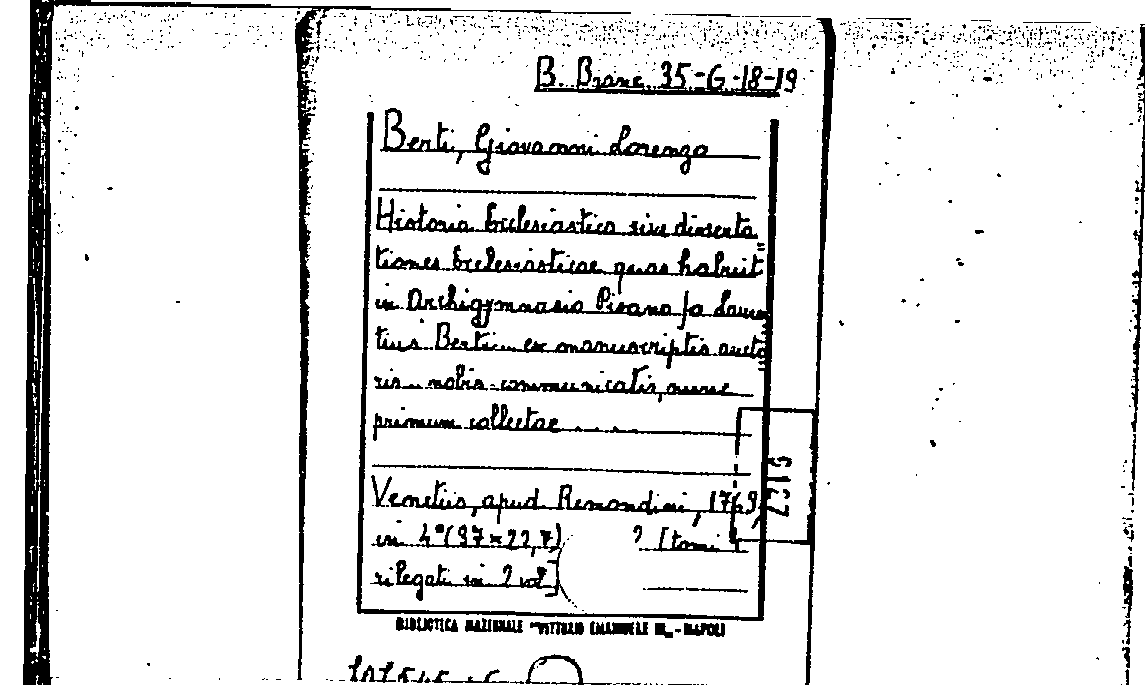 B. Branc. 35-G-18-19
Berti, Giovanni Lorenzo
Historia Ecclesiastica sive disserta
tiones Ecclesiasticae quas habuit
in Archigymnasio Pisano fo Lauren
tius Berti ex manuscriptis aucto
ris nobis communicatis, nunc
primum collectae .....
Venetiis, apud Remondini, 1769
in 4° (37×22,7) [tomi
rilegati in 2 vol]
BIBLIOTECA NAZIONALE "VITTORIO EMANUELE III" - NAPOLI